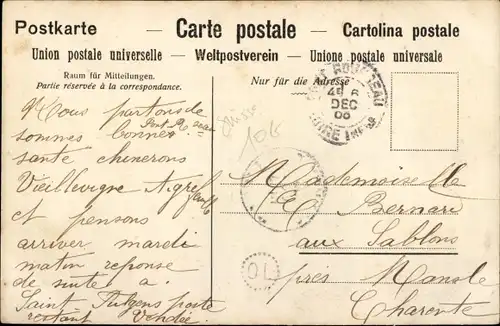 Postkarte — Carte postale — Cartolina postale
Union postale universelle — Weltpostverein — Unione postale universale
Raum für Mitteilungen.
Partie réservée à la correspondance.
Nur für die Adresse
DEC
06
LOIRE INFRE
Nous partons de
sommes bonne
santé
Vieillevigne
et pensons
arriver mardi
matin reponse
de suite a
Saint poste
restant Vendée
Mademoiselle
E Bernard
aux Sablons
près Mansle
Charente
OL